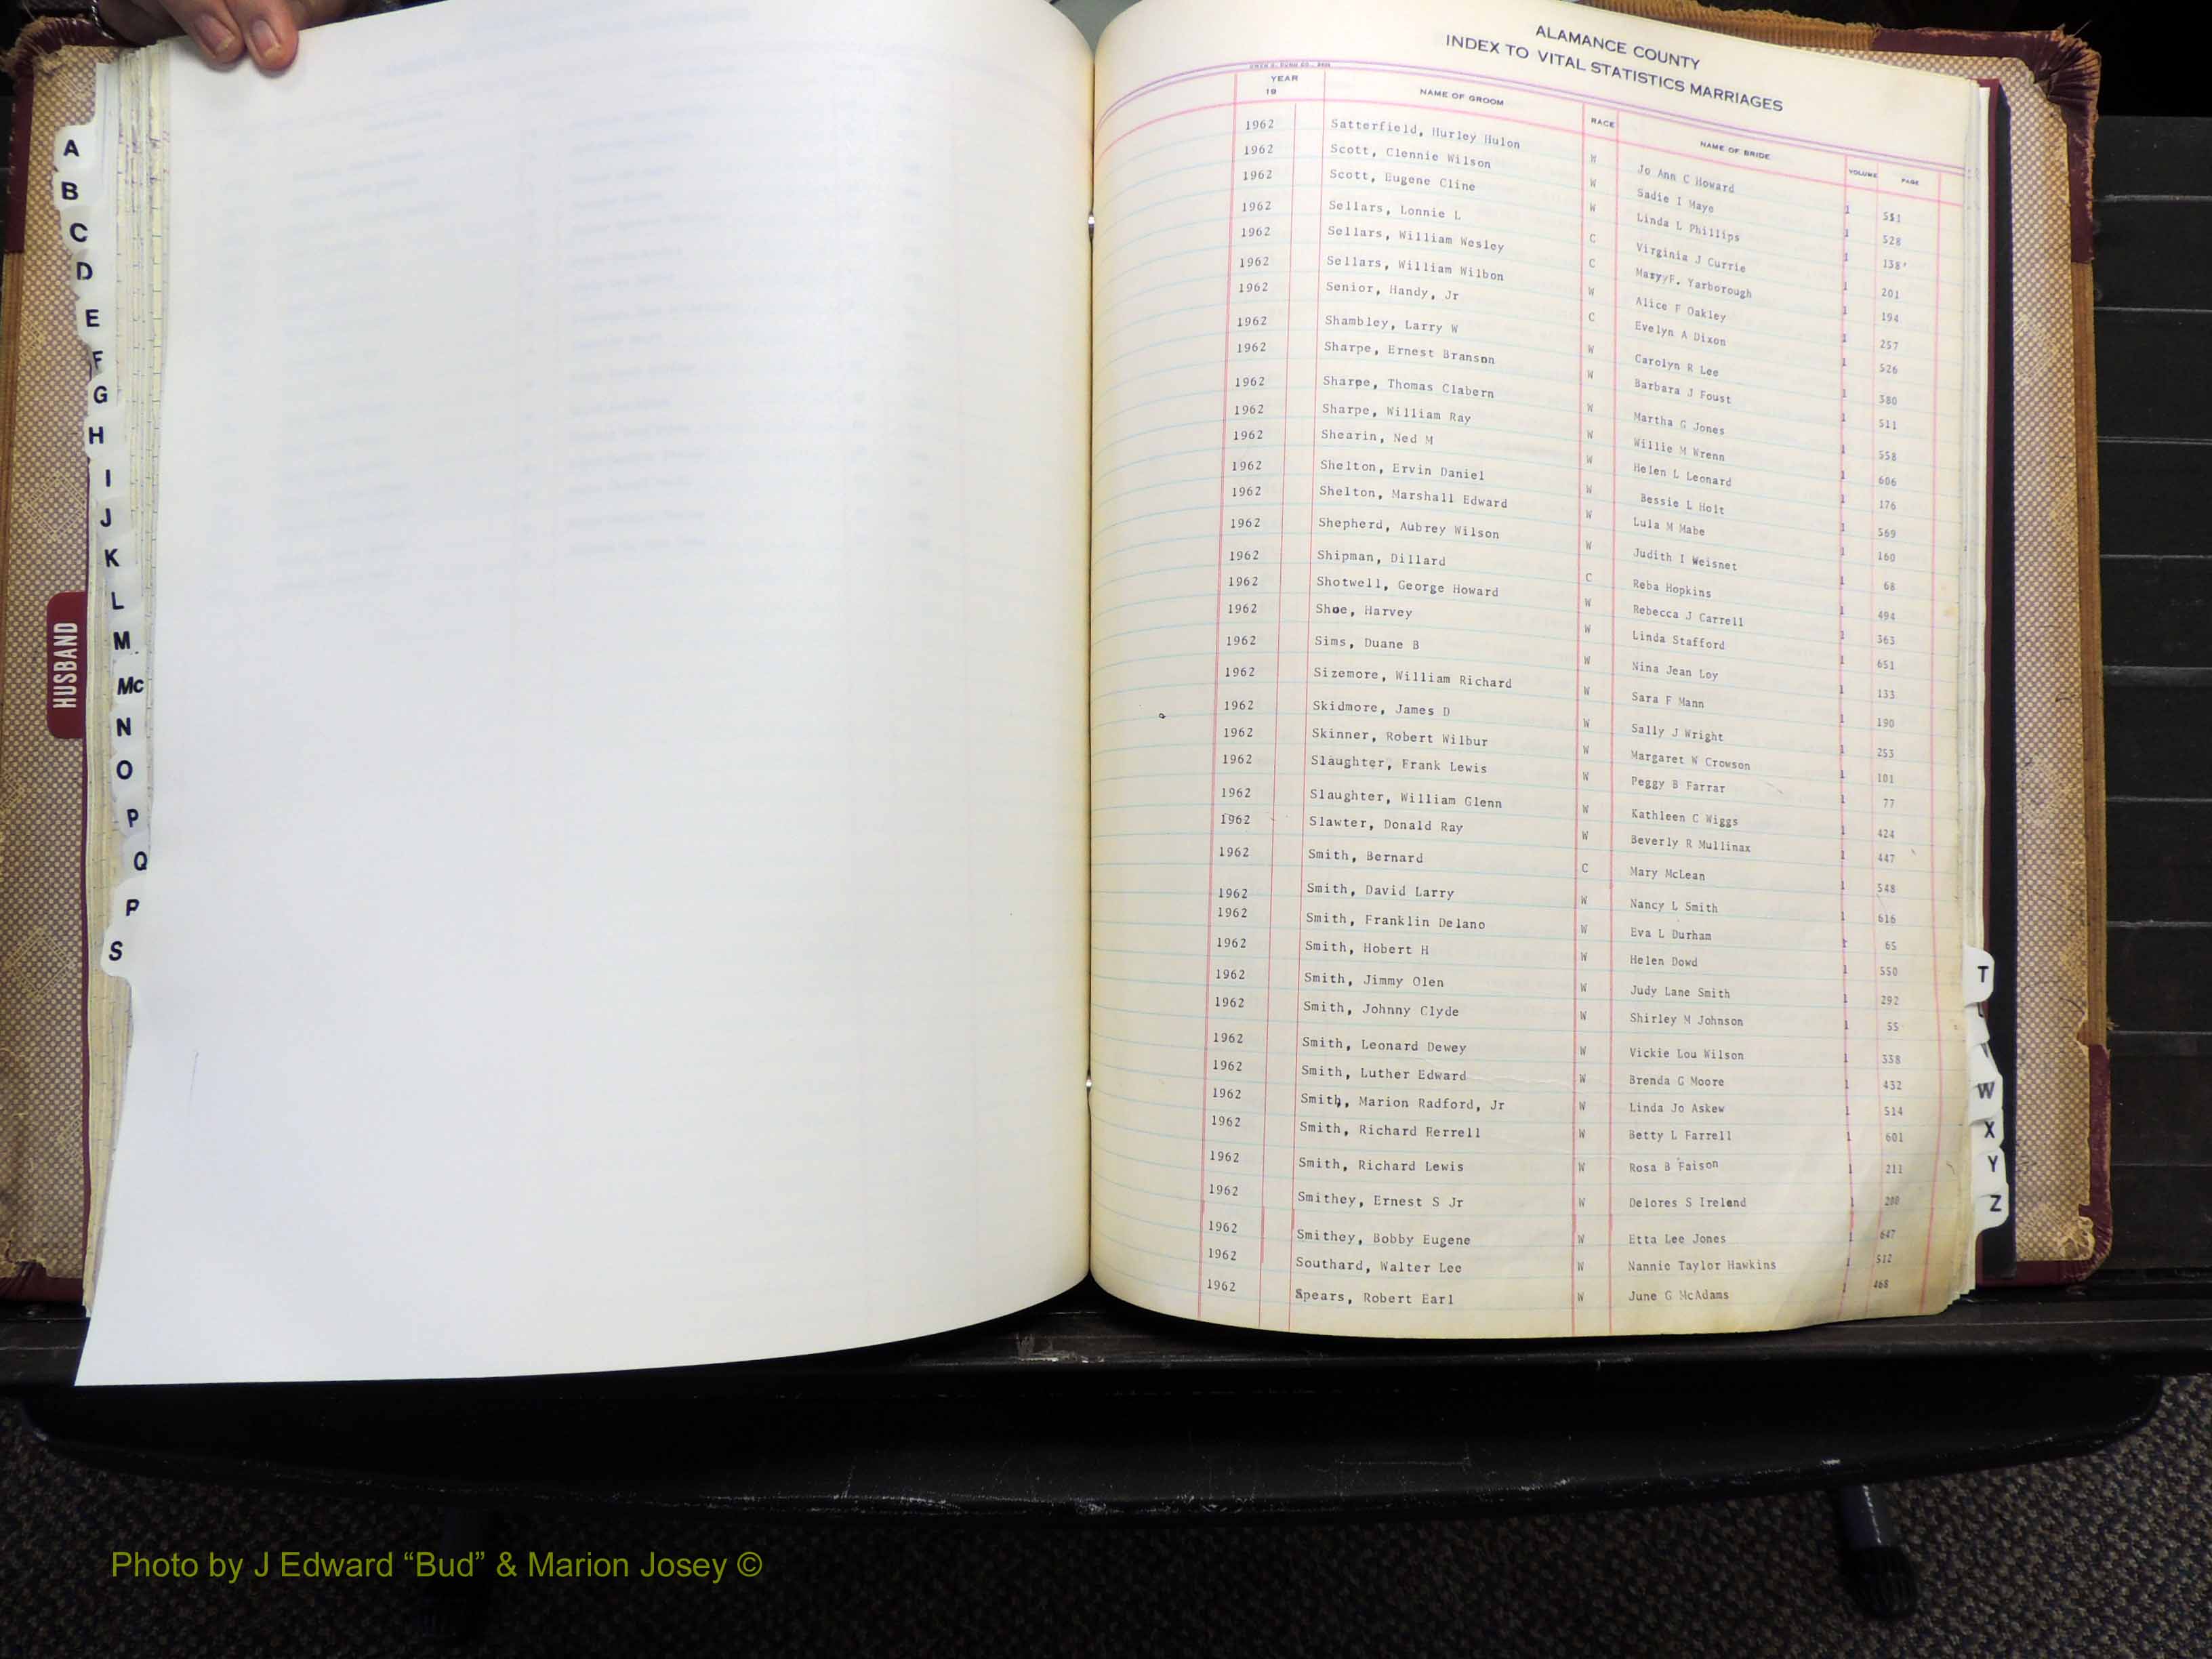 A
B
C
D
E
F
G
H
I
J
K
L
M
Mc
N
O
P
Q
P
S
HUSBAND
ALAMANCE COUNTY
INDEX TO VITAL STATISTICS MARRIAGES
YEAR 19 NAME OF GROOM RACE NAME OF BRIDE VOLUME PAGE
1962 Satterfield, Hurley Hulon W Jo Ann C Howard 1 551
1962 Scott, Clennie Wilson W Sadie I Mayo 1 528
1962 Scott, Eugene Cline W Linda L Phillips 1 138
1962 Sellars, Lonnie L C Virginia J Currie 1 201
1962 Sellars, William Wesley C Mary F. Yarborough 1 194
1962 Sellars, William Wilbon W Alice F Oakley 1 257
1962 Senior, Handy, Jr C Evelyn A Dixon 1 526
1962 Shambley, Larry W W Carolyn R Lee 1 380
1962 Sharpe, Ernest Branson W Barbara J Foust 1 511
1962 Sharpe, Thomas Clabern W Martha G Jones 1 558
1962 Sharpe, William Ray W Willie M Wrenn 1 606
1962 Shearin, Ned M W Helen L Leonard 1 176
1962 Shelton, Ervin Daniel W Bessie L Holt 1 569
1962 Shelton, Marshall Edward W Lula M Mabe 1 160
1962 Shepherd, Aubrey Wilson W Judith I Weisnet 1 68
1962 Shipman, Dillard C Reba Hopkins 1 494
1962 Shotwell, George Howard W Rebecca J Carrell 1 363
1962 Shoe, Harvey W Linda Stafford 1 651
1962 Sims, Duane B W Nina Jean Loy 1 133
1962 Sizemore, William Richard W Sara F Mann 1 190
1962 Skidmore, James D W Sally J Wright 1 253
1962 Skinner, Robert Wilbur W Margaret W Crowson 1 101
1962 Slaughter, Frank Lewis W Peggy B Farrar 1 77
1962 Slaughter, William Glenn W Kathleen C Wiggs 1 424
1962 Slawter, Donald Ray W Beverly R Mullinax 1 447
1962 Smith, Bernard C Mary McLean 1 548
1962 Smith, David Larry W Nancy L Smith 1 616
1962 Smith, Franklin Delano W Eva L Durham 1 65
1962 Smith, Hobert H W Helen Dowd 1 550
1962 Smith, Jimmy Olen W Judy Lane Smith 1 292
1962 Smith, Johnny Clyde W Shirley M Johnson 1 55
1962 Smith, Leonard Dewey W Vickie Lou Wilson 1 338
1962 Smith, Luther Edward W Brenda G Moore 1 432
1962 Smith, Marion Radford, Jr W Linda Jo Askew 1 514
1962 Smith, Richard Ferrell W Betty L Farrell 1 601
1962 Smith, Richard Lewis W Rosa B Faison 1 211
1962 Smithey, Ernest S Jr W Delores S Ireland 1
1962 Smithey, Bobby Eugene W Etta Lee Jones 1 647
1962 Southard, Walter Lee W Nannie Taylor Hawkins 1 512
1962 Spears, Robert Earl W June G McAdams 1 468
T
W
X
Y
Z
Photo by J Edward “Bud” & Marion Josey ©